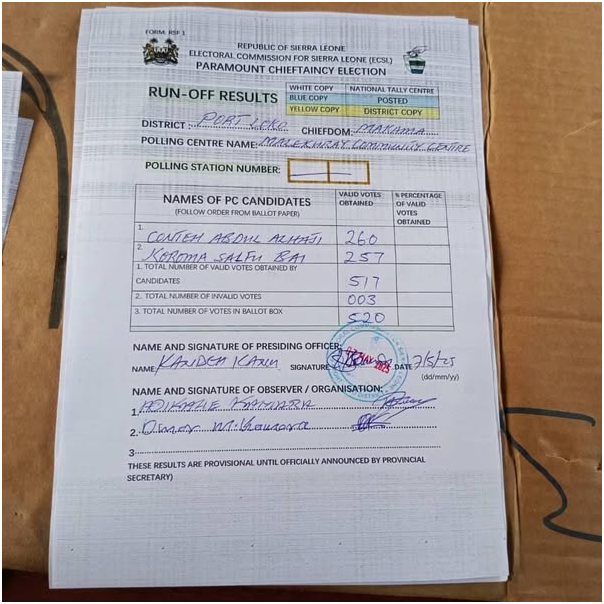 FORM. RSF 1
REPUBLIC OF SIERRA LEONE
ELECTORAL COMMISSION FOR SIERRA LEONE (ECSL)
PARAMOUNT CHIEFTAINCY ELECTION
RUN-OFF RESULTS
WHITE COPY NATIONAL TALLY CENTRE
BLUE COPY POSTED
YELLOW COPY DISTRICT COPY
DISTRICT: PORT LOKO CHIEFDOM: MAKAMA
POLLING CENTRE NAME: COMMUNITY CENTRE
POLLING STATION NUMBER:
NAMES OF PC CANDIDATES
(FOLLOW ORDER FROM BALLOT PAPER)
VALID VOTES OBTAINED
% PERCENTAGE OF VALID VOTES OBTAINED
1. CONTEH ABDUL ALHAJI 260
2. KOROMA SALFU BAI 257
1. TOTAL NUMBER OF VALID VOTES OBTAINED BY
CANDIDATES 517
2. TOTAL NUMBER OF INVALID VOTES 003
3. TOTAL NUMBER OF VOTES IN BALLOT BOX 520
NAME AND SIGNATURE OF PRESIDING OFFICER:
NAME KANDEH KANU SIGNATURE DATE 7/5/25
(dd/mm/yy)
NAME AND SIGNATURE OF OBSERVER / ORGANISATION:
1.
2.
3
THESE RESULTS ARE PROVISIONAL UNTIL OFFICIALLY ANNOUNCED BY PROVINCIAL
SECRETARY)